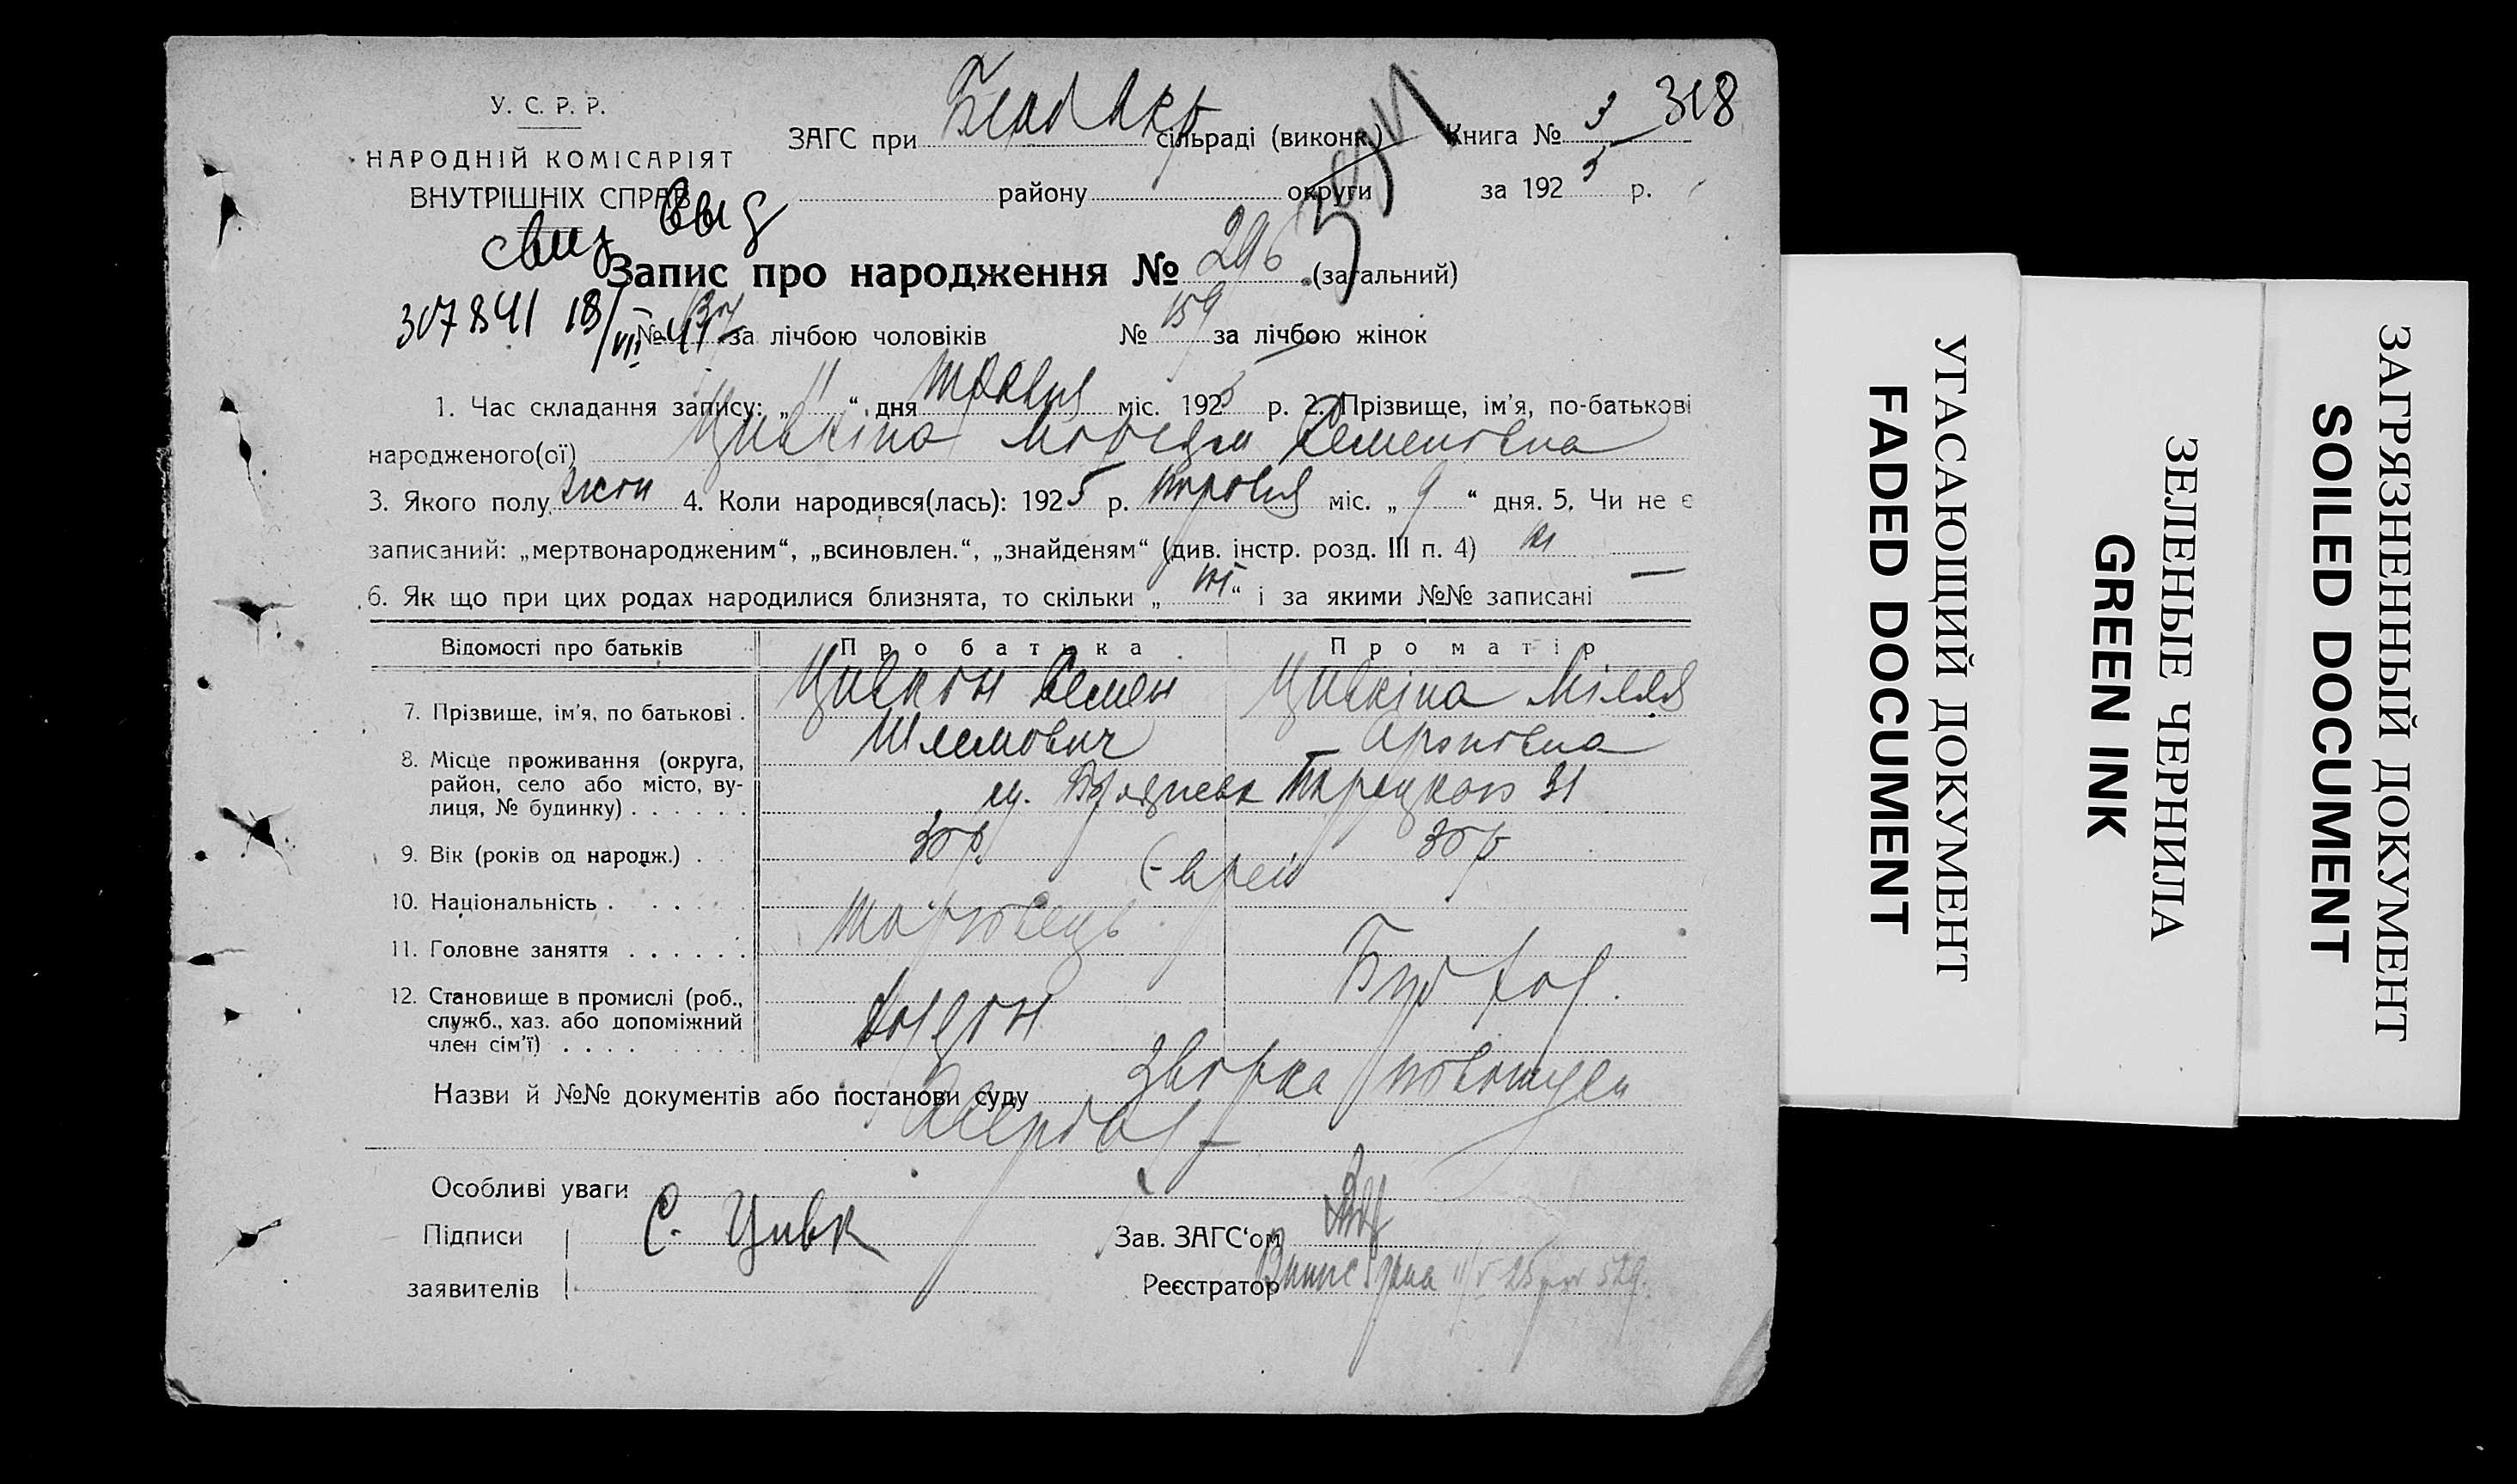 У. С. Р. Р.
НАРОДНІЙ КОМІСАРІЯТ
ВНУТРІШНІХ СПРАВ
ЗАГС при сільраді (виконк.) Книга № 3 318
району округи за 1925 р.
выд
Запис про народження № 296 (загальний)
307841 18/VII
№ 137 за лічбою чоловіків № 159 за лічбою жінок
1. Час складання запису: „ 11 “ дня травня міс. 1925 р. 2. Прізвище, ім’я, по-батькові
народженого(ої) Цивкіна Семеновна
3. Якого полу жон 4. Коли народився(лась): 1925 р. травня міс. „ 9 “ дня. 5. Чи не є
записаний: „мертвонародженим“, „всиновлен.“, „знайденям“ (див. інстр. розд. III п. 4) ні
6. Як що при цих родах народилися близнята, то скільки „ ні “ і за якими №№ записані —
Відомості про батьків Про батька Про матір
7. Прізвище, ім’я, по батькові . Цивкін Семен Шлемович Цивкіна Мілля Ароновна
8. Місце проживання (округа,
район, село або місто, ву-
лиця, № будинку) . . . . . . 31
9. Вік (років од народж.) . 30 р. 30 р
10. Національність . . . євреи
11. Головне заняття . . . . . . торговець
12. Становище в промислі (роб.,
служб., хаз. або допоміжний
член сім’ї) . . . .
Назви й №№ документів або постанови суду
Особливі уваги
Підписи С. Цивк Зав. ЗАГС‘ом
заявителів Реєстратор
УГАСАЮЩИЙ ДОКУМЕНТ
FADED DOCUMENT
ЗЕЛЕНЫЕ ЧЕРНИЛА
GREEN INK
ЗАГРЯЗНЕННЫЙ ДОКУМЕНТ
SOILED DOCUMENT